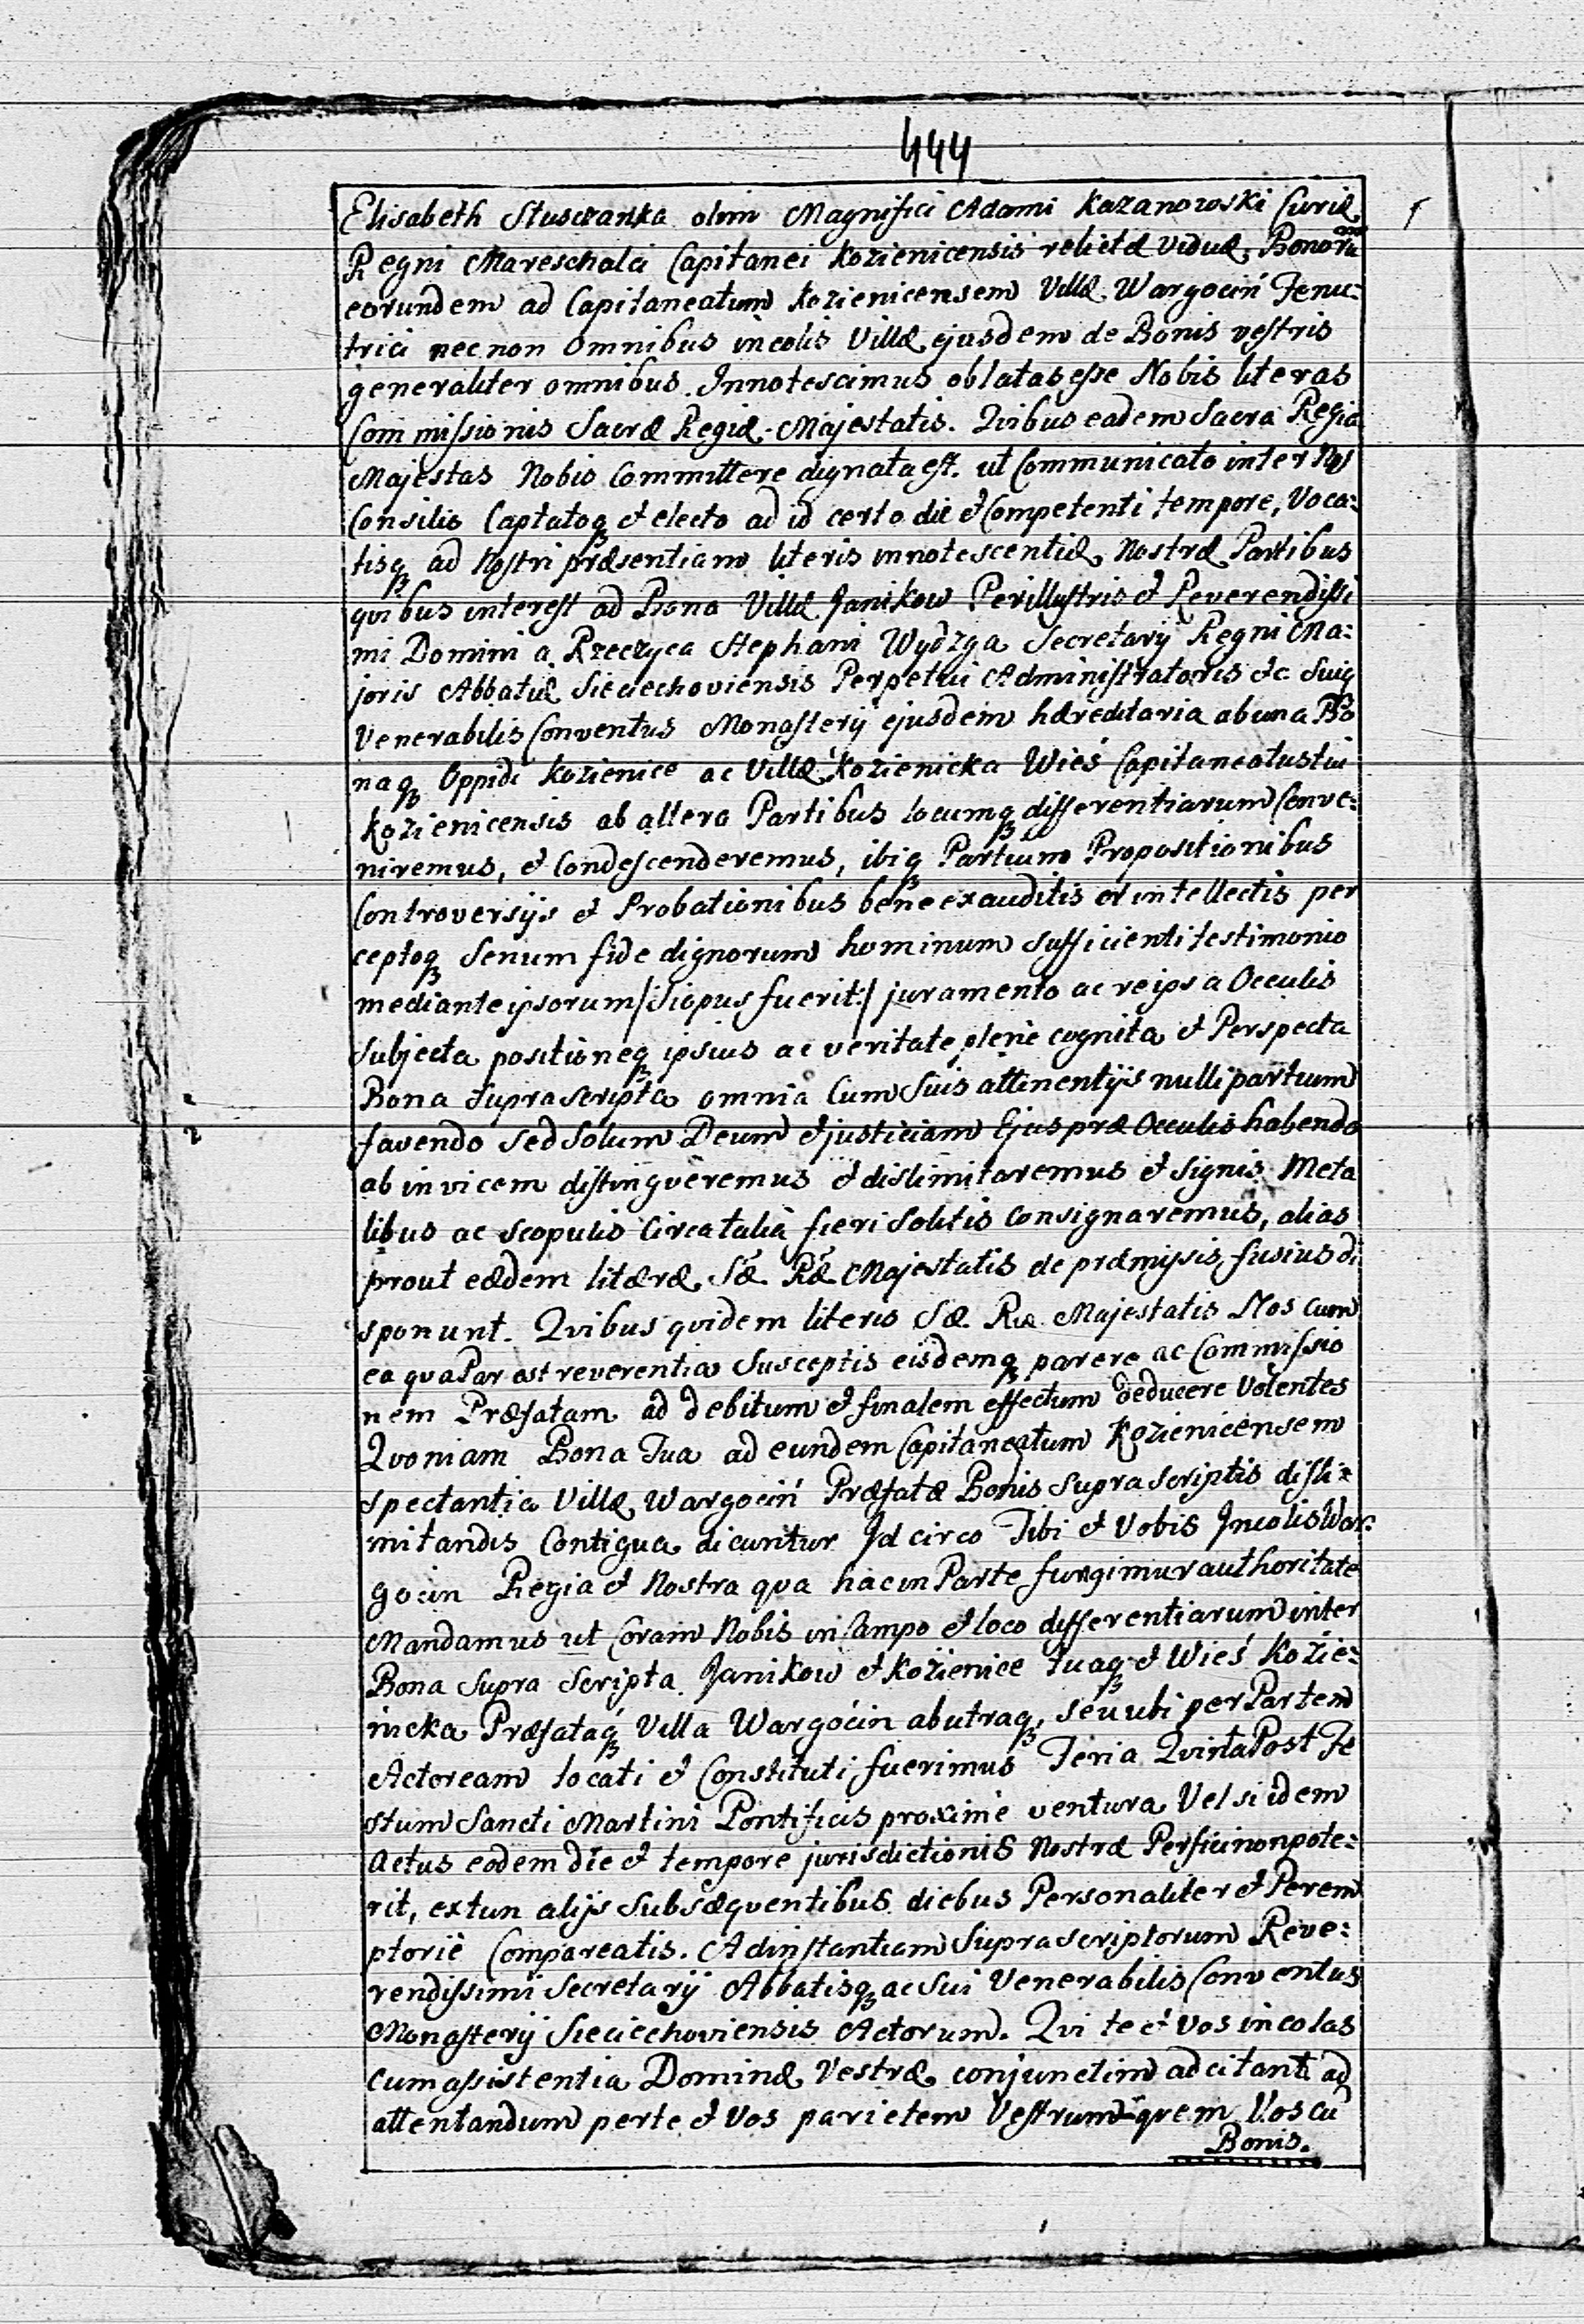 444
Elisabeth Stusczanka olim Magnifici Adami Kazanowski Curiæ
Regni Mareschalci Capitanei Kozienicensis relictæ Viduæ, Bonorū
eorundem ad Capitaneatum Kozienicensem Villæ Wargociń Tenu:
trici nec non Omnibus incolis Villæ ejusdem de Bonis vestris
generaliter omnibus. Innotescimus oblatas esse Nobis literas
Commissionis Sacræ Regiæ Majestatis. Qvibus eadem Sacra Regia
Majestas Nobis Committere dignata est. ut Communicato inter Nos
Consilio Captatoq et electo ad id certo die et Competenti tempore, Voca:
tisq ad Nostri præsentiam literis innotescentiæ Nostræ Partibus
qvibus interest ad Bona Villæ Janikow Perillustris et Reverendissi
mi Domini a Rzeczyca Stephani Wydzga Secretarij Regni Ma:
joris Abbatiæ Sieciechoviensis Perpetui Administratoris etc Suiq
Venerabilis Conventus Monasterij ejusdem hæreditaria ab una Bo
naq Oppidi Kozienice ac Villæ Kozienicka Wieś Capitaneatus tui
Kozienicensis ab altera Partibus locumq differentiarum Conve:
niremus, et Condescenderemus, ibiq Partium Propositionibus
Controversijs et Probationibus bene exauditis et intellectis per
ceptoq Senum fide dignorum hominum sufficienti testimonio
mediante ipsorum /Si opus fuerit:/ juramento ac re ipsa Occulis
Subjecta positioneq ipsius ac veritate plene cognita et Perspecta
Bona Supra scripta omnia Cum Suis attinentijs nulli partium
favendo sed Solum Deum et justiciam Ejus præ Occulis habendo
ab invicem distingveremus et dislimitaremus et Signis Meta
libus ac scopulis Circa talia fieri Solitis Consignaremus, alias
prout eædem literæ Sæ Ræ Majestatis de præmissis fusius di
sponunt. Qvibus qvidem literis Sæ Ræ Majestatis Nos cum
ea qva Par est reverentia Susceptis eisdemq parere ac Commissio
nem Præfatam ad debitum et finalem effectum deducere Volentes
Qvoniam Bona Tua ad eundem Capitaneatum Kozienicensem
spectantia Villæ Wargociń Præfatæ Bonis Supra scriptis disli:
mitandis Contigua dicuntur Id circo Tibi et Vobis Incolis War:
gocin Regia et Nostra qva hac in Parte fungimur authoritate
Mandamus ut Coram Nobis in Campo et loco differentiarum inter
Bona Supra Scripta Janikow et Kozienice Tuaq et Wieś Kozie:
nicka Præfataq Villa Wargocin ab utraq, seu ubi per Partem
Actoream locati et Constituti fuerimus Feria Qvinta Post Fe
stum Sancti Martini Pontificis proxime ventura Vel si idem
Actus eodem die et tempore jurisdictionis Nostræ Perfici non pote:
rit, extun alijs Subsæqventibus diebus Personaliter et Perem
ptorie Compareatis. Ad instantiam Supra scriptorum Reve:
rendissimi Secretarij Abbatisq ac Sui Venerabilis Conventus
Monasterij Sieciechoviensis Actorum. Qvi te et vos incolas
Cum assistentia Dominæ Vestræ conjunctim adcitant ad
attentandum per te et Vos parietem Vestrum qvem Vos cū
Bonis.